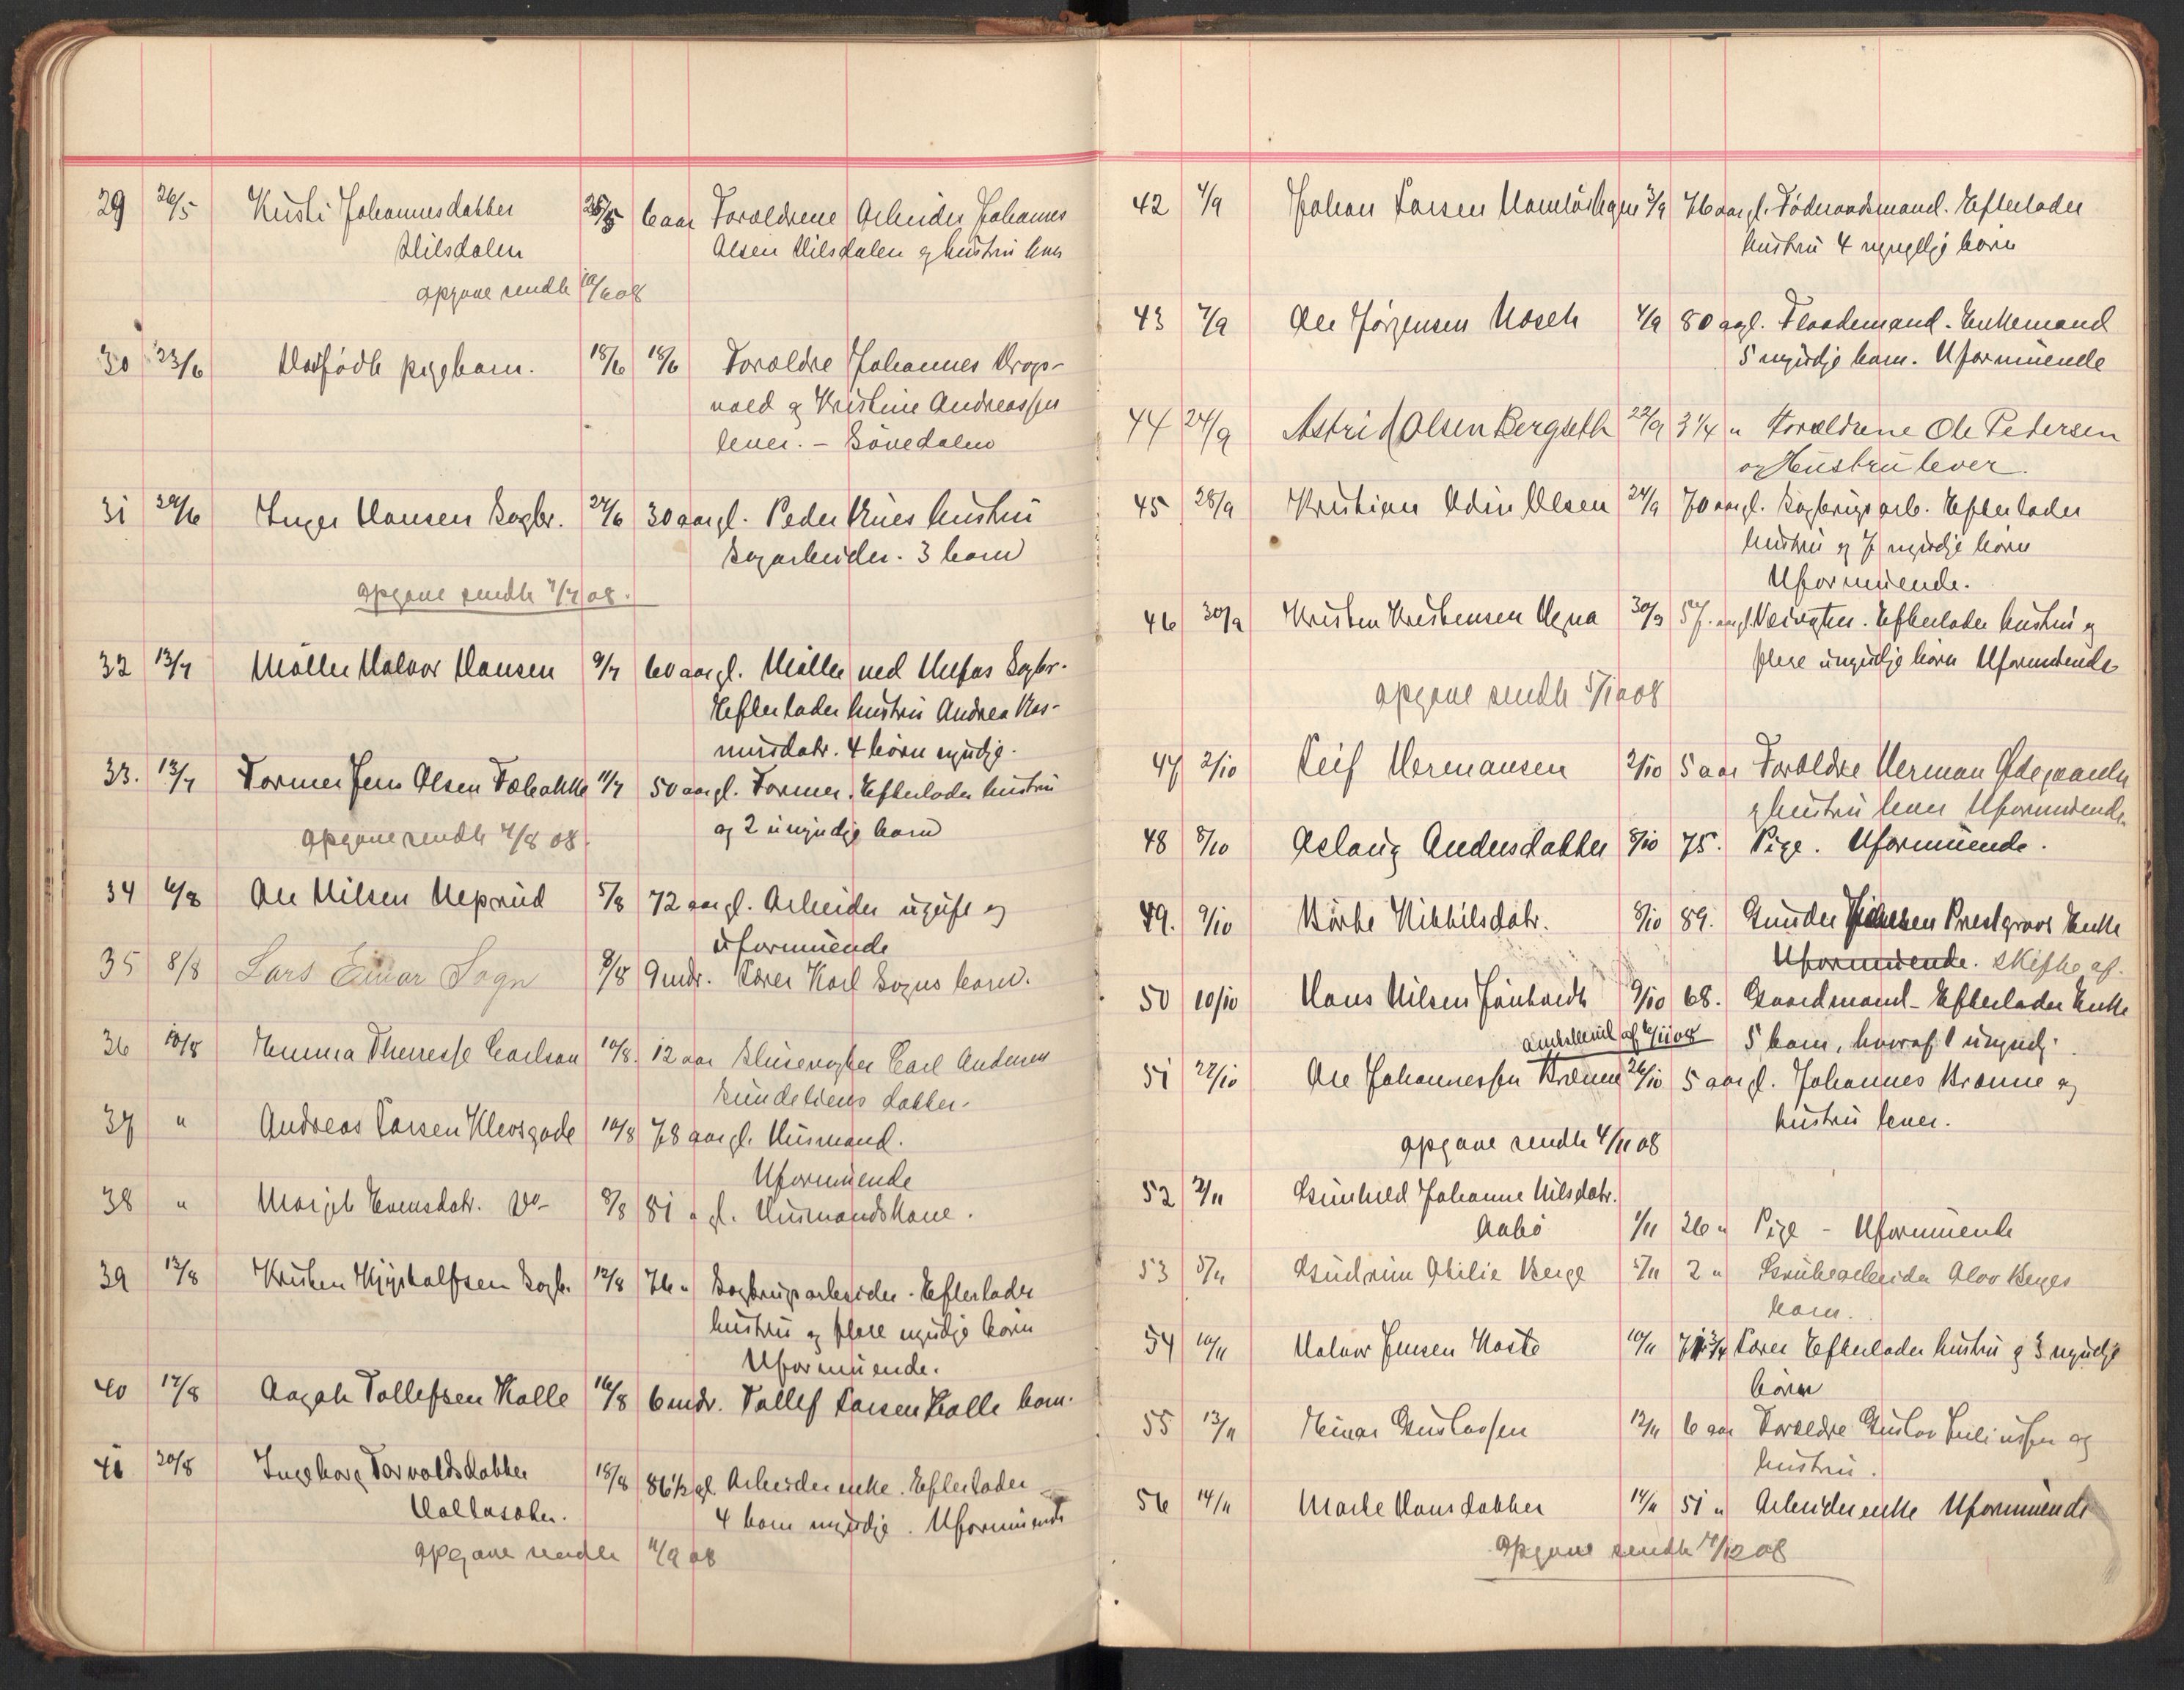 29 26/5 Kirsti Johannesdatter 25/5 6 aar Forældrene Arbeider Johannes
Hilsdalen Olsen Hilsdalen og hustru lever
opgave sendt 10/6 08
30 23/6 Dødfødt pigebarn. 18/6 18/6 Forældre Johannes
vold og Kristine Andreassen
lever. -
31 Inger Hansen Sagbr. 24/6 30 aar gl. Peder hustru
Sagarbeider. 3 barn
opgave sendt 7/7 08.
32 13/7 Møller Halvor Hansen 9/7 60 aar gl. Møller ved Sagbr.
Efterlader hustru Andrea Ras-
musdatr. 4 børn myndige.
33. 13/7 Former Jens Olsen 11/7 50 aar gl. Former. Efterlader hustru
og 2 umyndige barn
opgave sendt 4/8 08.
34 6/8 Ole Nilsen 5/8 72 aar gl. Arbeider ugift og
uformuende
35 8/8 Lars Einar Sogn 8/8 9 mdr. Karl Sogns barn.
36 10/8 Emma Theresse Carlson 10/8. 12 aar Slusevogter Carl
datter.
37 " Andreas Larsen 10/8 78 aar gl. Husmand.
Uformuende
38 " Margit Evensdatr. Do- 8/8 81 " gl. Husmandskone.
39 12/8 Kristen Sagb. 12/8 76 " Sagbrugsarbeider. Efterlader
hustru og flere myndige børn
Uformuende.
40 17/8 Aagot Tollefsen Kalle 16/8 6 mdr. Tollef Larsen Kalle barn.
41 20/8 Ingeborg Torvaldsdatter 18/8 86½ gl Arbeiderenke. Efterlader
4 barn myndige. Uformuende
opgave sendt 11/9 08
42 4/9 Johan Larsen 3/9 76 aar gl. Føderaadsmand. Efterlader
hustru 4 myndige børn
43 7/9 Ole Jørgensen 4/9 80 aar gl. Enkemand
5 myndige barn. Uformuende
44 24/9 Astrid Olsen Bergseth 22/9 3 1/4 " Forældrene Ole Pedersen
og Hustru lever.
45 28/9 Kristian Odin Olsen 24/9 70 aar gl. Sagbrugsarb. Efterlader
hustru og 7 myndige børn
Uformuende.
46 30/9 Kristen Kristensen 30/9 57. aar gl. Veivogter. Efterlader hustru og
flere umyndige børn Uformuende
opgave sendt 5/10 08
47 2/10 Leif Hermansen 2/10 5 aar Forældre Herman Ødegaarden
og hustru lever Uformuende.
48 8/10 Aslaug Andersdatter 8/10 75. Pige. Uformuende.
49. 9/10 Kirste Kittilsdatr. 8/10 89. Gunder Prestgravs Enke
Uformuende. skifte af.
50 10/10 Hans Nilsen 9/10 68. Gaardmand - Efterlader Enke
6/11 08 5 barn, hvoraf 1 umyndig.
51 27/10 Ole Johannessen Brænne 26/10 5 aar gl. Johannes Brænne og
hustru lever.
opgave sendt 4/11 08
52 2/11 Gunhild Johanne Nilsdatr.
Aabø 1/11 26 " Pige - Uformuende
53 5/11 Gudrun Otilie Berge 5/11 2 " Grubearbeider Olav Berges
barn.
54 10/11 Halvor Jensen 10/11 71 3/4 Efterlader hustru og 3 myndige
børn
55 13/11 Einar Gustavsen 12/11 6 aar Forældre Gustav Juliussen og
hustru.
56 14/11 Marte Hansdatter 14/11 51 " Arbeiderenke Uformuende
opgave sendt 12 08